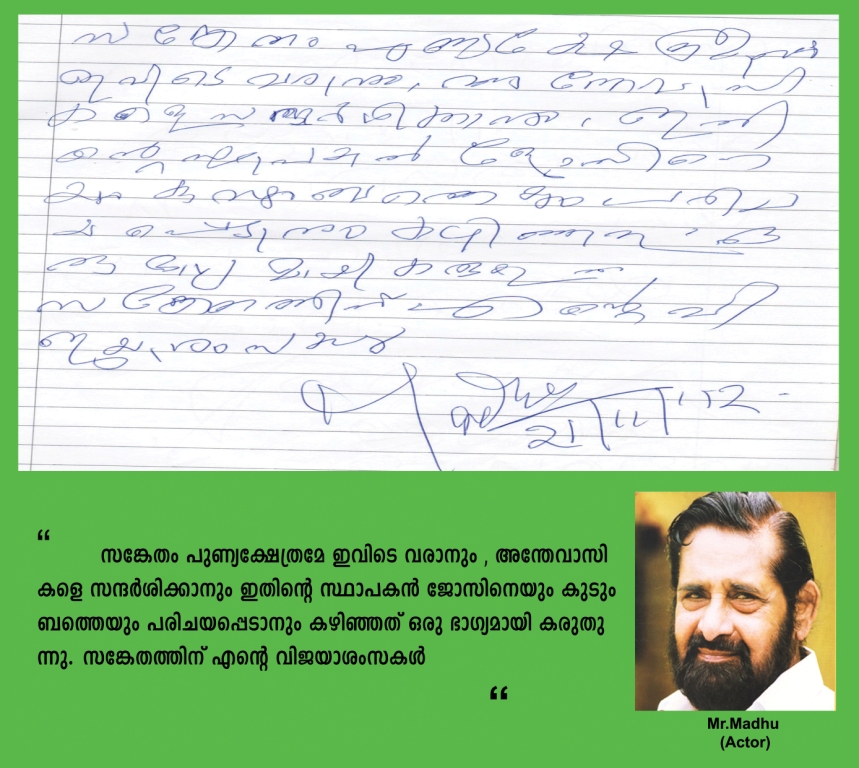 സങ്കേതം പുണ്യക്ഷേത്രമേ
ഇവിടെ വരാനും, അന്തേവാസി
കളെ സന്ദർശിക്കാനും, ഇതി
ന്റെ സ്ഥാപകൻ ജോസിനെ
യും കുടുംബത്തെയും പരിച
യപ്പെടാനും കഴിഞ്ഞത് ഒ
രു ഭാഗ്യമായി കരുതുന്നു
സങ്കേതത്തിന് എന്റെ വി
ജയാശംസകൾ
21/11/12
“
സങ്കേതം പുണ്യക്ഷേത്രമേ ഇവിടെ വരാനും , അന്തേവാസി
കളെ സന്ദർശിക്കാനും ഇതിന്റെ സ്ഥാപകൻ ജോസിനെയും കുടും
ബത്തെയും പരിചയപ്പെടാനും കഴിഞ്ഞത് ഒരു ഭാഗ്യമായി കരുതു
ന്നു. സങ്കേതത്തിന് എന്റെ വിജയാശംസകൾ
“
Mr.Madhu
(Actor)